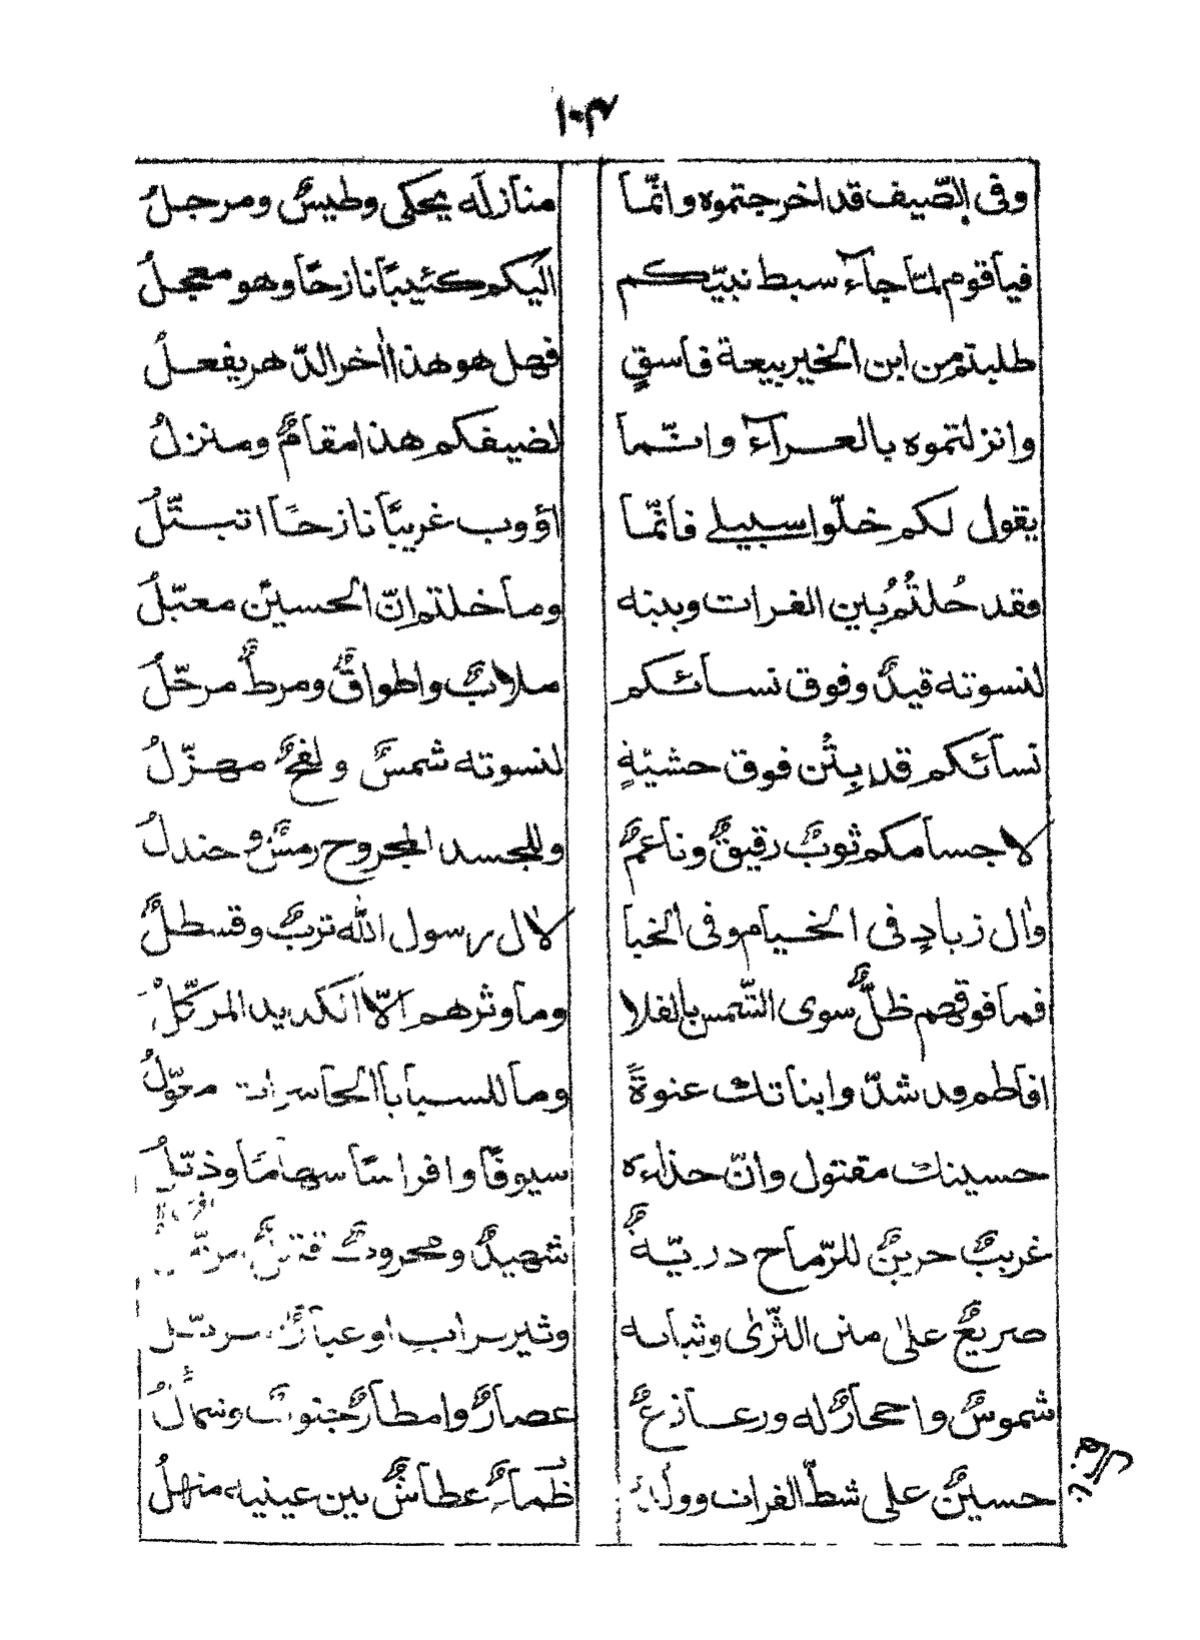 ١٠٣
وفى الصّيف قد اخرجتموه وانّما منازله يحكى وطيسٌ ومرجلُ
فيا قوم لمّا جآء سبط نبيّكم اليكم كئيبًا نازحًا وهو معجلُ
طلبتم من ابن الخير بيعة فاسقٍ فهل هو هذا اٰخر الدّهر يفعلُ
وانزلتموه بالعرآء وانّما لضيفكم هذا مقامٌ ومنزلُ
يقول لكم خلّوا سبيلى فانّما اؤوب غريبًا نازحًا اتبتّلُ
وقد حُلتُمُ بين الفرات وبينه وما خلتم انّ الحسين معبّلُ
لنسوته قيدٌ وفوق نسائكم ملابٌ واطواقٌ ومرطٌ مرحّلُ
نسائكم قد بِتْن فوق حشيّةٍ لنسوته شمسٌ ولفحٌ مهزّلُ
لاجسامكم ثوبٌ رقيقٌ وناعمٌ وللجسد المجروح رمسٌ وجندلُ
واٰل زيادٍ فى الخيام وفى الخبا لاٰل رسول الله تربٌ وقسطلُ
فما فوقهم ظلٌّ سوى الشّمس بالفلا وما وثرهم الّا الكديد المركّلُ
افاطم قد شدّ وابناتك عنوةً وما للسبايا الحاسرات معوّلُ
حسينك مقتول وانّ حذاءه سيوفًا وافراسًا سهامًا وذبّلُ
غريبٌ حزينٌ للرّماح دريّةٌ شهيدٌ ومحرودٌ
صريعٌ علىٰ متن الثّرىٰ وثيابه
شموسٌ واحجارٌ له ورعازعٌ عصارٌ وامطارٌ جنوبٌ وشمألُ
حسينٌ على شطّ الفرات وولده ظماءٌ عطاشٌ بين عينيه منهلُ